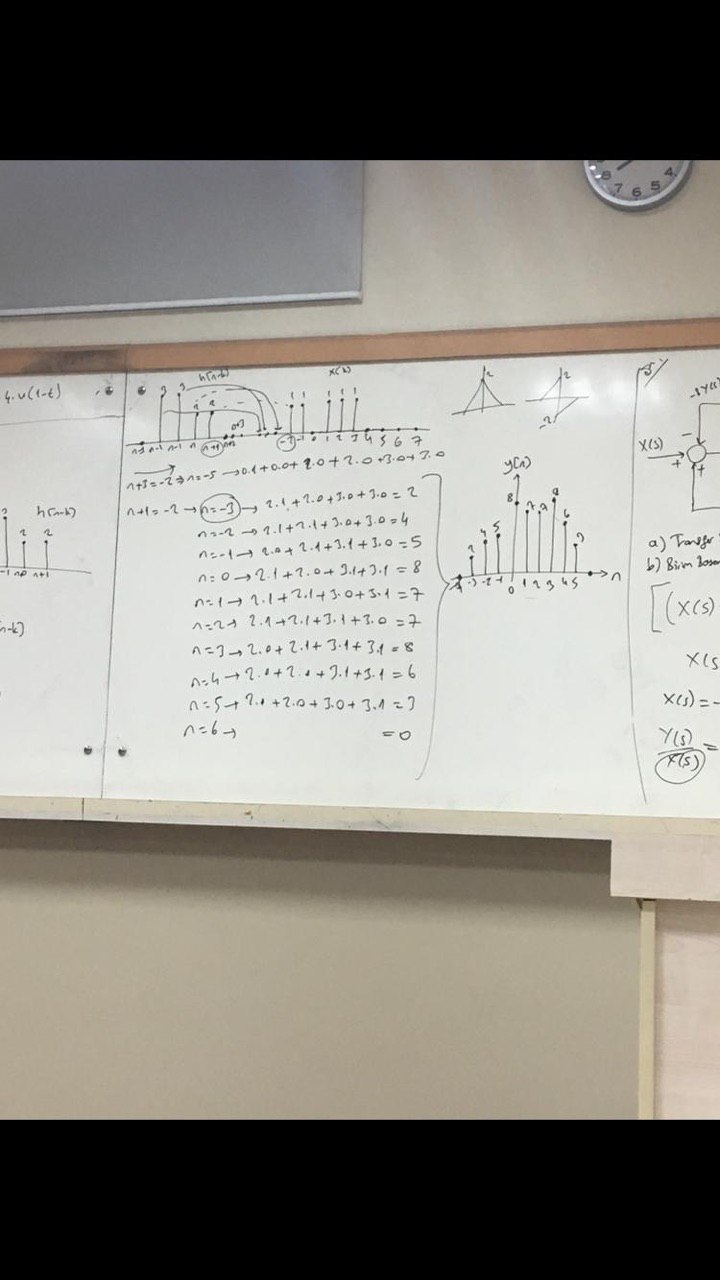 4.u(1-t)
h[n-k]
-1 n n+1
n-k]
h[n-k] x(k)
3 3 2 2
1 1 1 1 1
n-2 n-1 n n+1 n+2 n+3 -2 -1 0 1 2 3 4 5 6 7
n+3=-2 ⇒ n=-5 → 0.1+0.0+2.0+2.0+3.0+3.0
n+1=-2 → n=-3 → 2.1+2.0+3.0+3.0=2
n=-2 → 2.1+2.1+3.0+3.0=4
n=-1 → 2.0+2.1+3.1+3.0=5
n=0 → 2.1+2.0+3.1+3.1=8
n=1 → 2.1+2.1+3.0+3.1=7
n=2 → 2.1+2.1+3.1+3.0=7
n=3 → 2.0+2.1+3.1+3.1=8
n=4 → 2.0+2.0+3.1+3.1=6
n=5 → 2.0+2.0+3.0+3.1=3
n=6 → =0
2 2
-2
y[n]
2 4 5 8 7 7 8 6 3
-4 -3 -2 -1 0 1 2 3 4 5 n
5)
X(s) + - +
a) Transfer
b) Birim
[(X(s)
X(s
X(s)=-
Y(s)
X(s) =
8 7 6 5 4